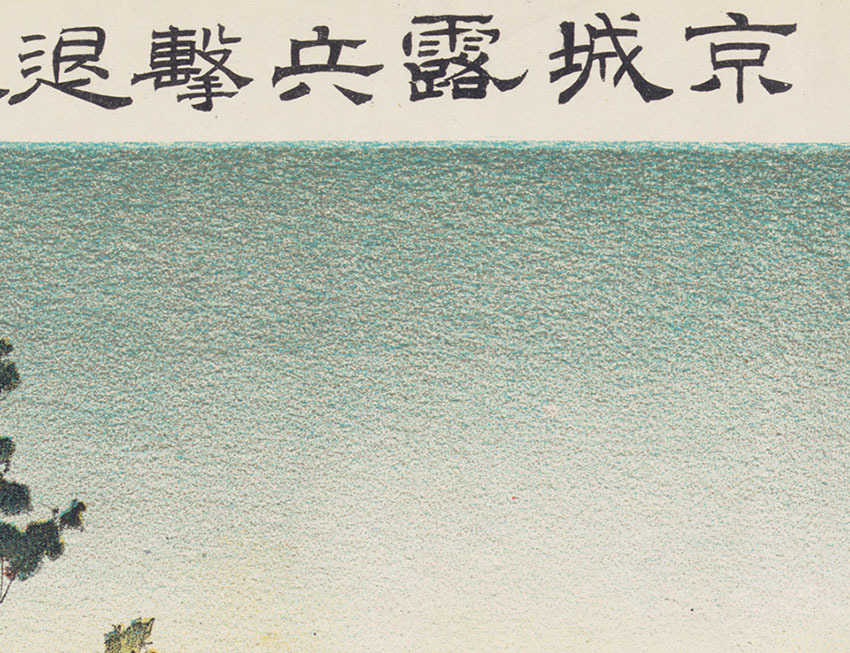 京城露兵擊退